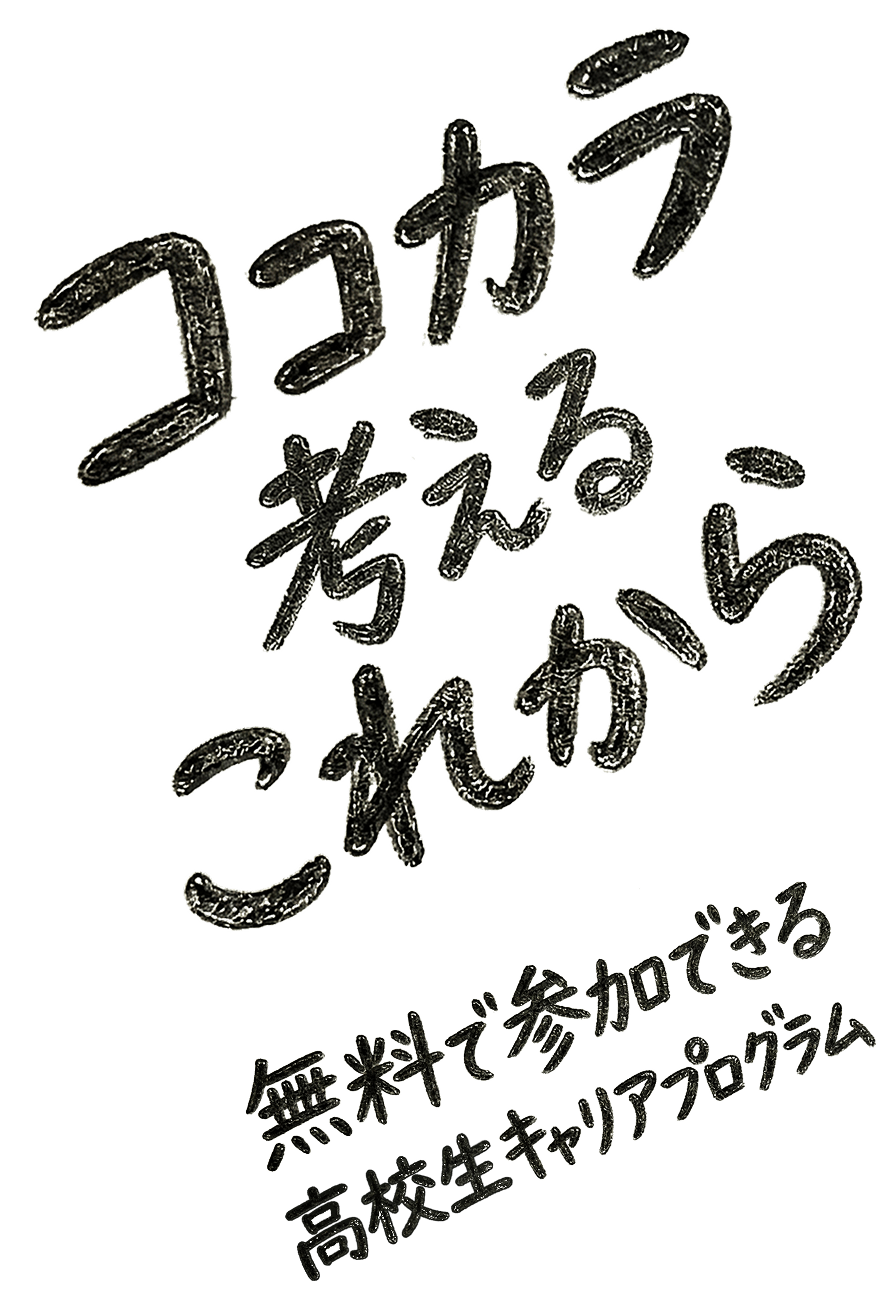 ココカラ
考える
これから
無料で参加できる
高校生キャリアプログラム